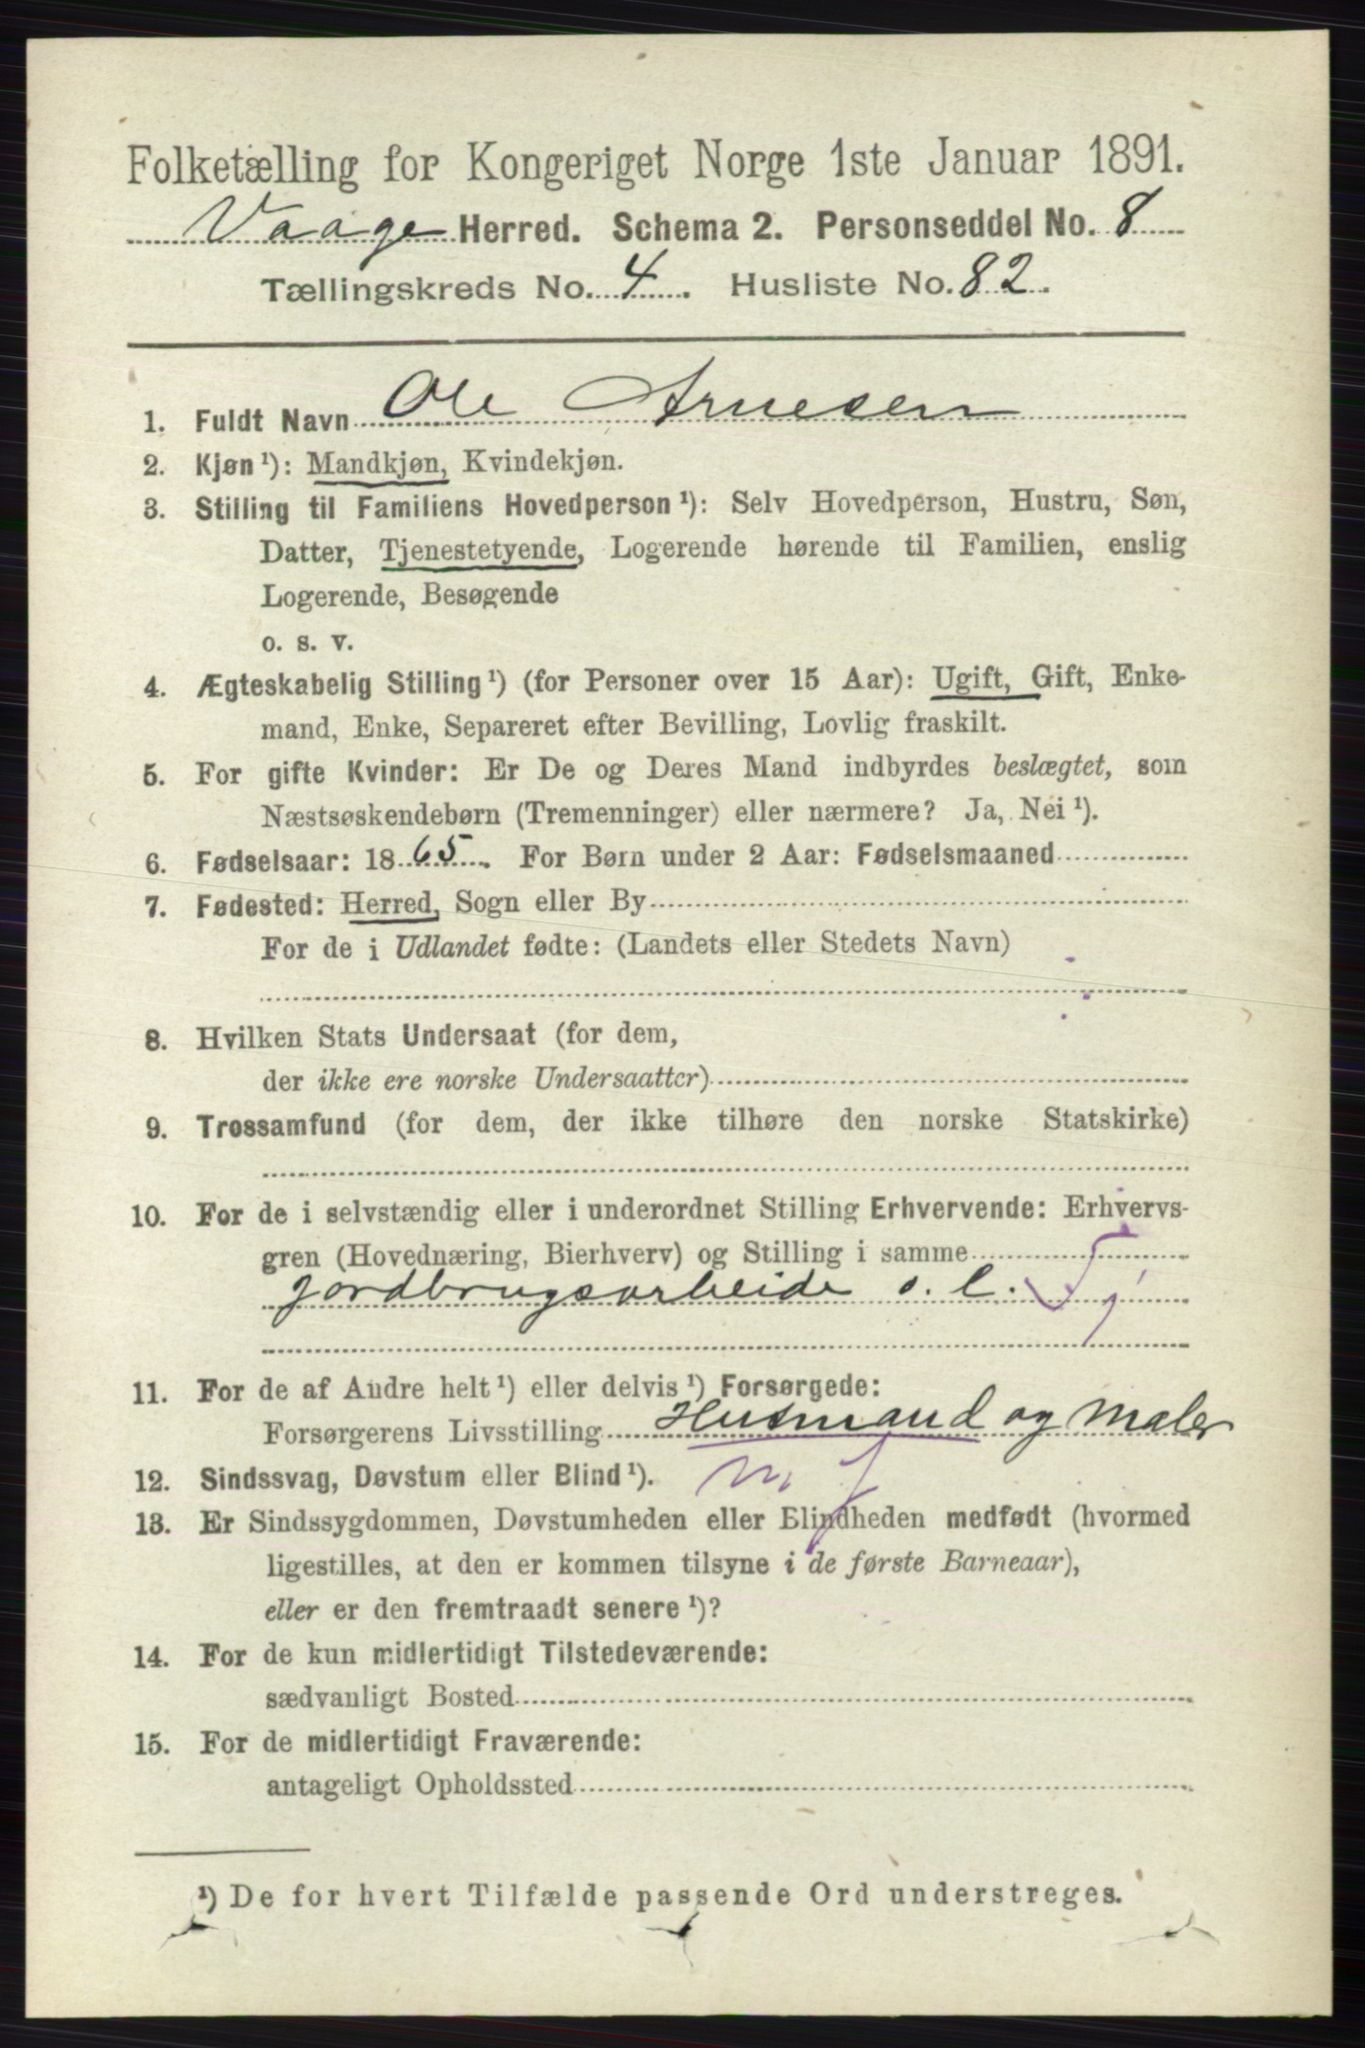 Folketælling for Kongeriget Norge 1ste Januar 1891.
Vaage Herred. Schema 2. Personseddel No. 8
Tællingskreds No. 4. Husliste No. 82.
1. Fuldt Navn Ole Arnesen
2. Kjøn ¹): Mandkjøn, Kvindekjøn.
3. Stilling til Familiens Hovedperson ¹): Selv Hovedperson, Hustru, Søn,
Datter, Tjenestetyende, Logerende hørende til Familien, enslig
Logerende, Besøgende
o. s. v.
4. Ægteskabelig Stilling ¹) (for Personer over 15 Aar): Ugift, Gift, Enke-
mand, Enke, Separeret efter Bevilling, Lovlig fraskilt.
5. For gifte Kvinder: Er De og Deres Mand indbyrdes beslægtet, som
Næstsøskendebørn (Tremenninger) eller nærmere? Ja, Nei ¹).
6. Fødselsaar: 1865. For Børn under 2 Aar: Fødselsmaaned
7. Fødested: Herred, Sogn eller By
For de i Udlandet fødte: (Landets eller Stedets Navn)
8. Hvilken Stats Undersaat (for dem,
der ikke ere norske Undersaatter)
9. Trossamfund (for dem, der ikke tilhøre den norske Statskirke)
10. For de i selvstændig eller i underordnet Stilling Erhvervende: Erhvervs-
gren (Hovednæring, Bierhverv) og Stilling i samme
jordbrugsarbeide o. l. Tj
11. For de af Andre helt ¹) eller delvis ¹) Forsørgede:
Forsørgerens Livsstilling Husmand og Maler
12. Sindssvag, Døvstum eller Blind ¹). m j
13. Er Sindssygdommen, Døvstumheden eller Blindheden medfødt (hvormed
ligestilles, at den er kommen tilsyne i de første Barneaar),
eller er den fremtraadt senere ¹)?
14. For de kun midlertidigt Tilstedeværende:
sædvanligt Bosted
15. For de midlertidigt Fraværende:
antageligt Opholdssted
¹) De for hvert Tilfælde passende Ord understreges.